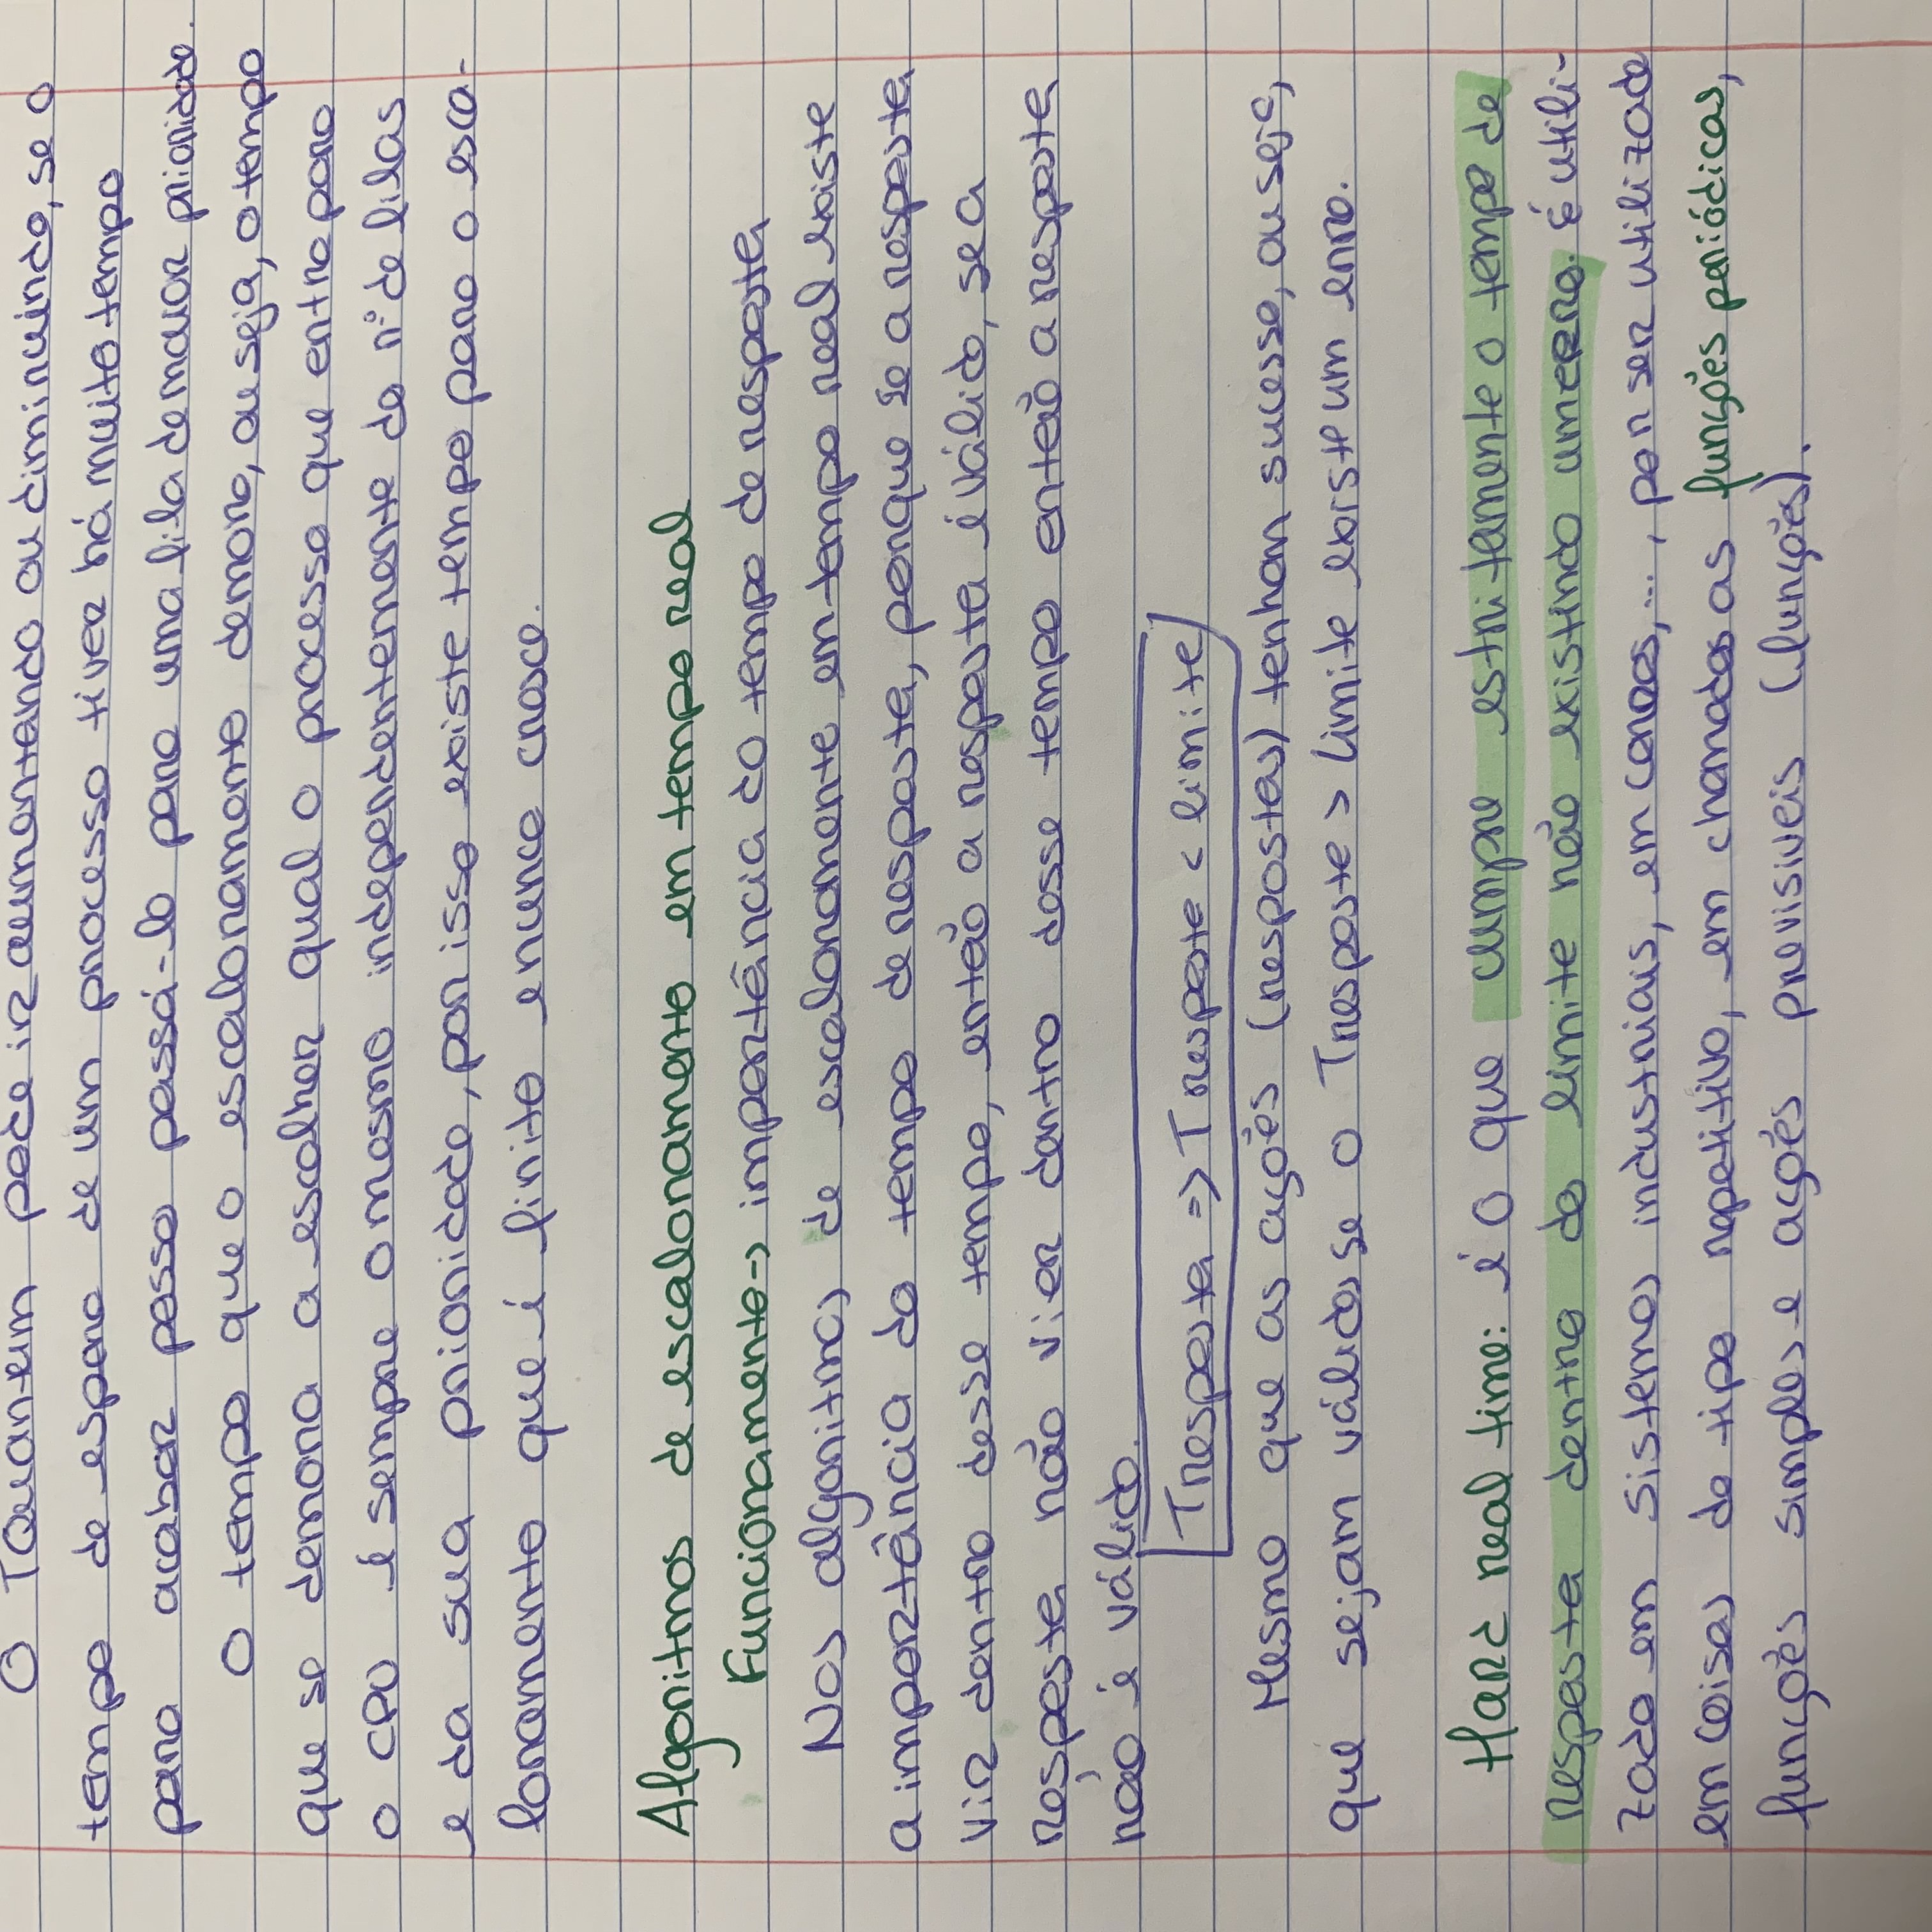 O TQuantum pode ir aumentando ou diminuindo, se o
tempo de espera de um processo tiver há muito tempo
para acabar posso passá-lo para uma fila de maior prioridade.
O tempo que o escalonamento demora, ou seja, o tempo
que se demora a escolher qual o processo que entra para
o CPU é sempre o mesmo independentemente do nº de filas
e da sua prioridade, por isso existe tempo para o esca-
lonamento que é finito e nunca cresce.
Algoritmos de escalonamento em tempo real
Funcionamento -> importância do tempo de resposta
Nos algoritmos de escalonamento em tempo real existe
a importância do tempo de resposta, porque se a resposta
vir dentro desse tempo, então a resposta é válido, se a
resposta não vier dentro desse tempo então a resposta
não é válido.
Tresposta => Tresposta < limite
Mesmo que as ações (respostas) tenham sucesso, ou seja,
que sejam válidas se o Tresposta > limite existe um erro.
Hard real time: é o que cumpre estritamente o tempo de
resposta dentro do limite não existindo um erro. É utili-
zado em sistemas industriais, em carros, ..., por ser utilizado
em coisas do tipo repetitivo, em chamadas as funções periódicas,
funções simples e ações previsiveis (funções).